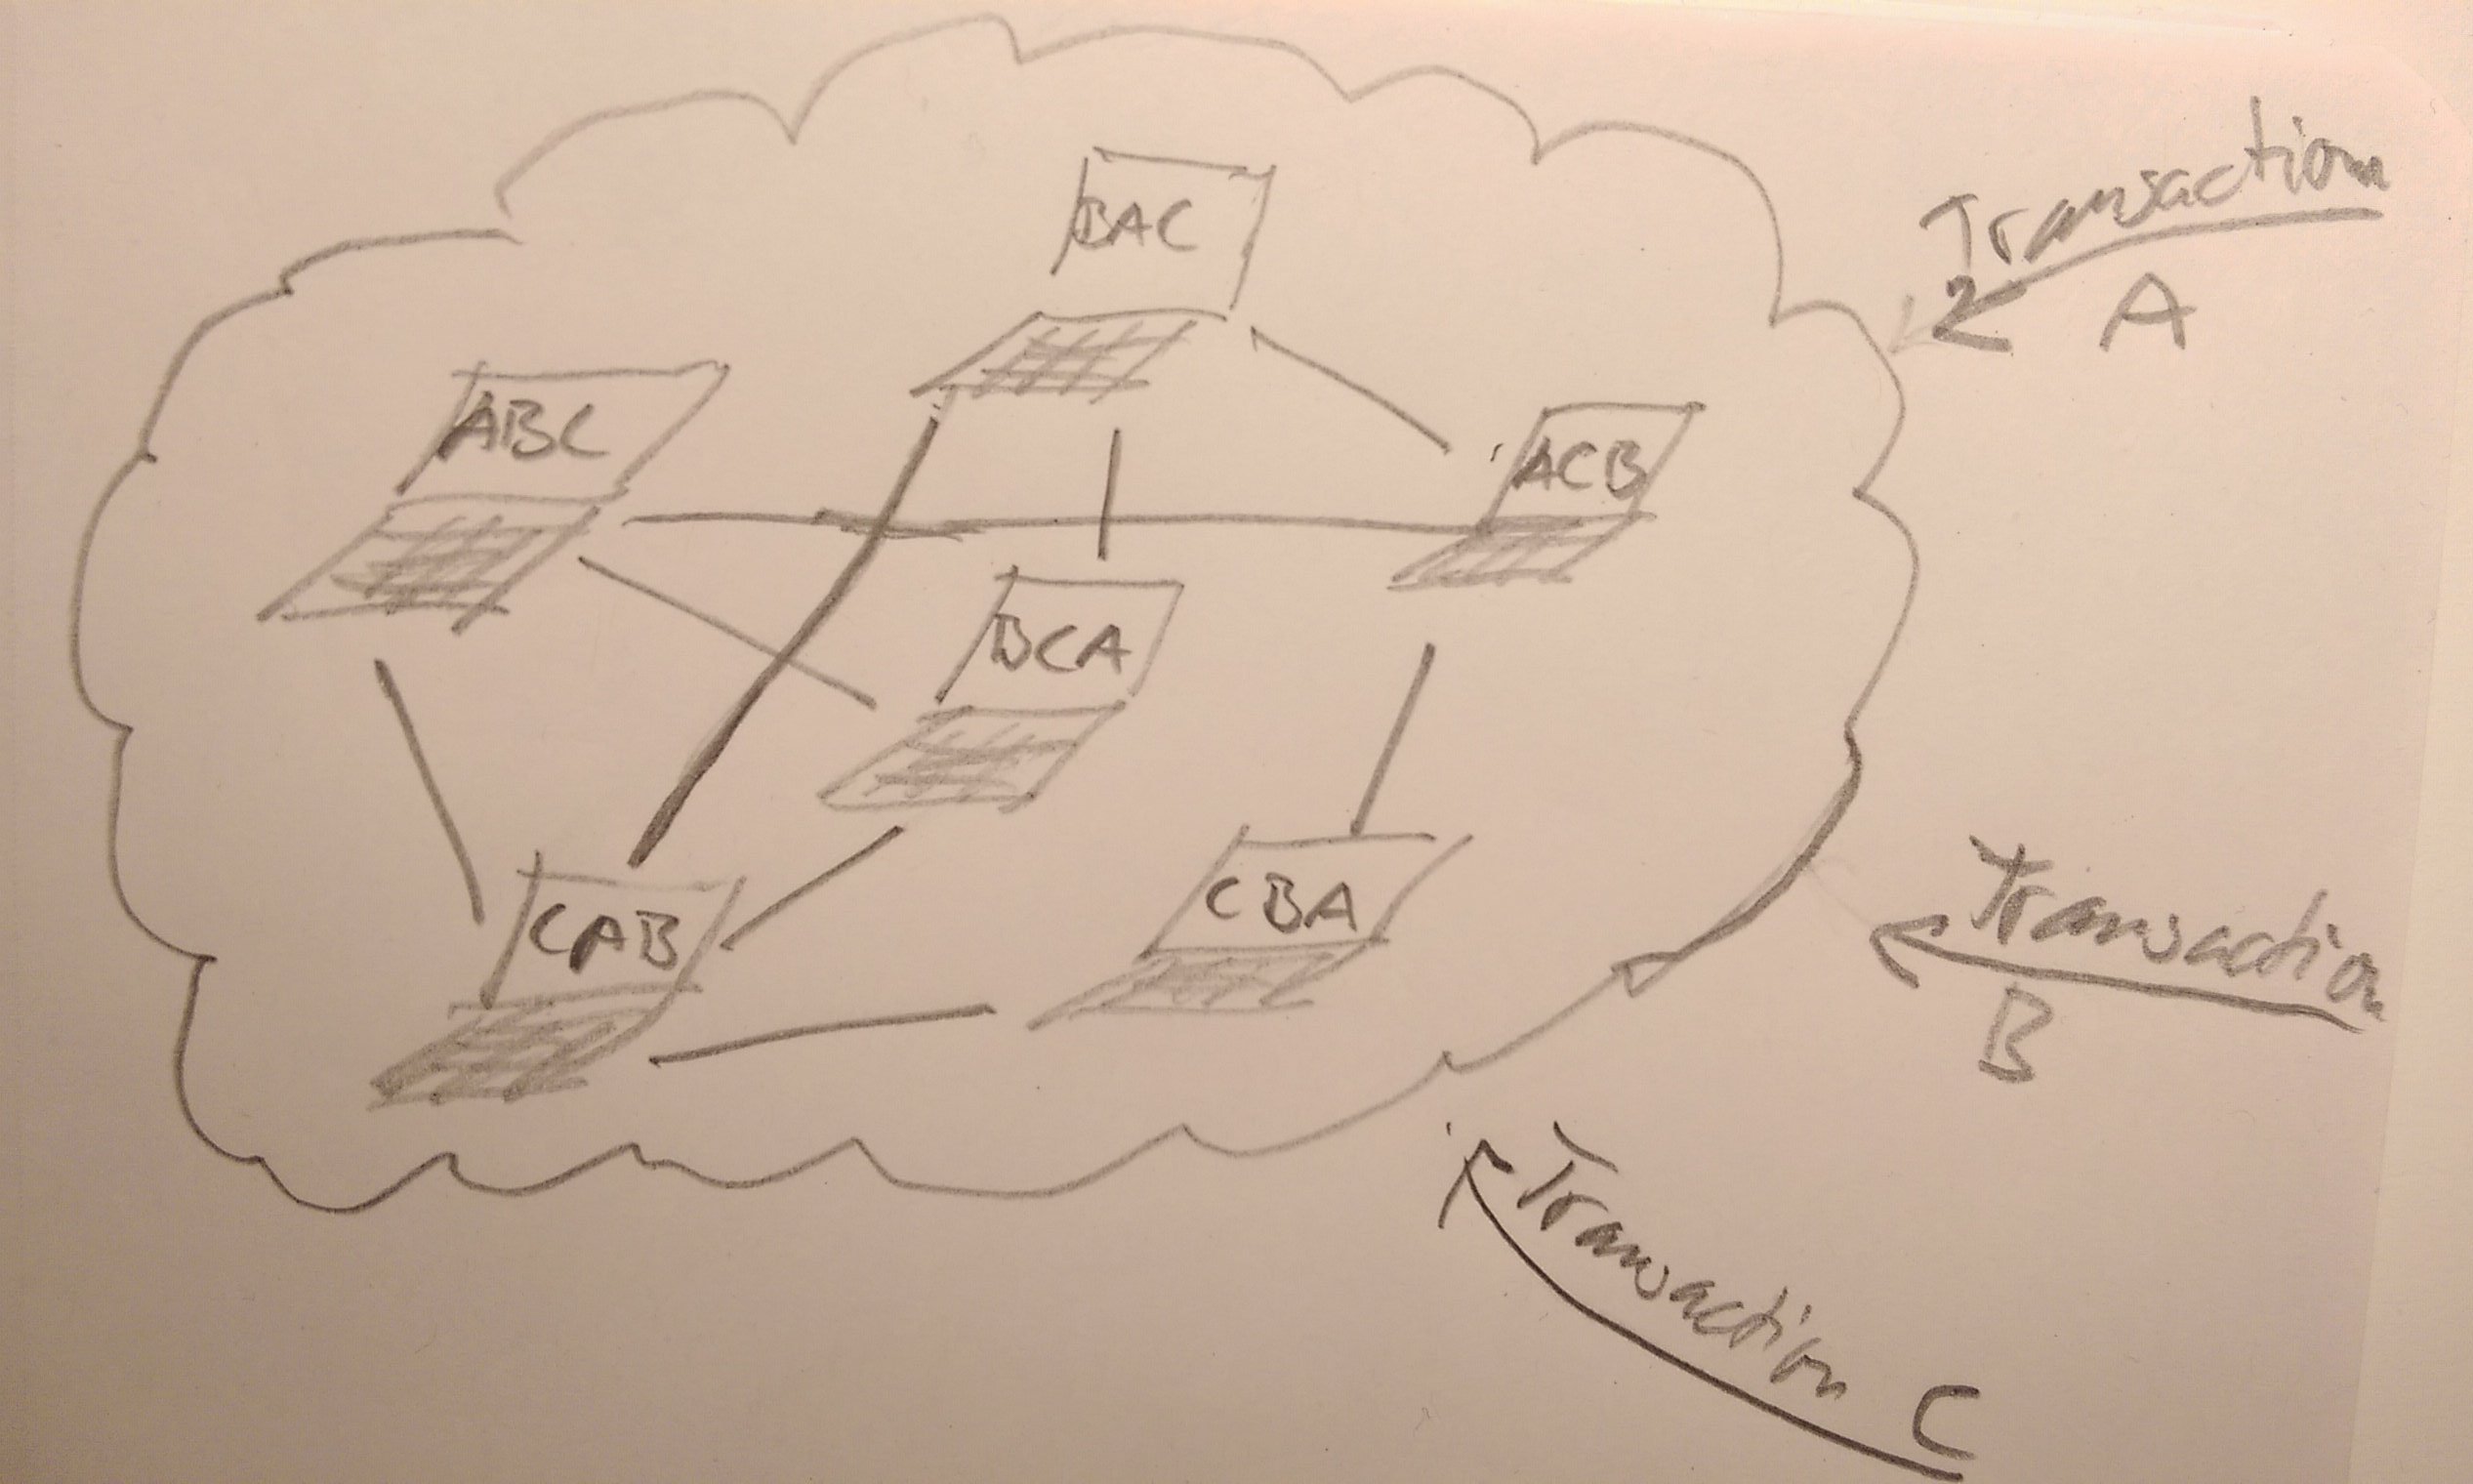 BAC
ABC
ACB
BCA
CAB
CBA
Transaction
A
Transaction
B
Transaction C